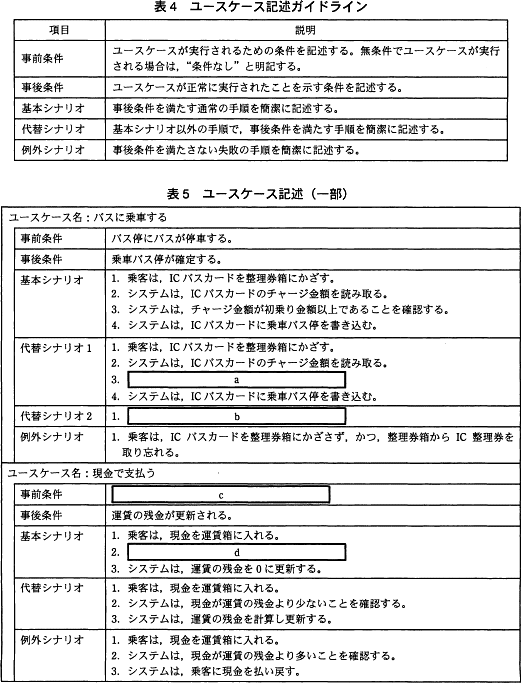 表4 ユースケース記述ガイドライン
項目 説明
事前条件 ユースケースが実行されるための条件を記述する。無条件でユースケースが実行
される場合は，“条件なし”と明記する。
事後条件 ユースケースが正常に実行されたことを示す条件を記述する。
基本シナリオ 事後条件を満たす通常の手順を簡潔に記述する。
代替シナリオ 基本シナリオ以外の手順で，事後条件を満たす手順を簡潔に記述する。
例外シナリオ 事後条件を満たさない失敗の手順を簡潔に記述する。
表5 ユースケース記述（一部）
ユースケース名：バスに乗車する
事前条件 バス停にバスが停車する。
事後条件 乗車バス停が確定する。
基本シナリオ 1. 乗客は，ICバスカードを整理券箱にかざす。
2. システムは，ICバスカードのチャージ金額を読み取る。
3. システムは，チャージ金額が初乗り金額以上であることを確認する。
4. システムは，ICバスカードに乗車バス停を書き込む。
代替シナリオ1 1. 乗客は，ICバスカードを整理券箱にかざす。
2. システムは，ICバスカードのチャージ金額を読み取る。
3. a
4. システムは，ICバスカードに乗車バス停を書き込む。
代替シナリオ2 1. b
例外シナリオ 1. 乗客は，IC バスカードを整理券箱にかざさず，かつ，整理券箱から IC 整理券を
取り忘れる。
ユースケース名：現金で支払う
事前条件 c
事後条件 運賃の残金が更新される。
基本シナリオ 1. 乗客は，現金を運賃箱に入れる。
2. d
3. システムは，運賃の残金を0に更新する。
代替シナリオ 1. 乗客は，現金を運賃箱に入れる。
2. システムは，現金が運賃の残金より少ないことを確認する。
3. システムは，運賃の残金を計算し更新する。
例外シナリオ 1. 乗客は，現金を運賃箱に入れる。
2. システムは，現金が運賃の残金より多いことを確認する。
3. システムは，乗客に現金を払い戻す。